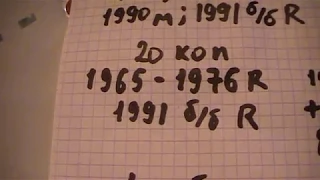 1990 м; 1991 б/б R
20 коп
1965 - 1976 R
1991 б/б R